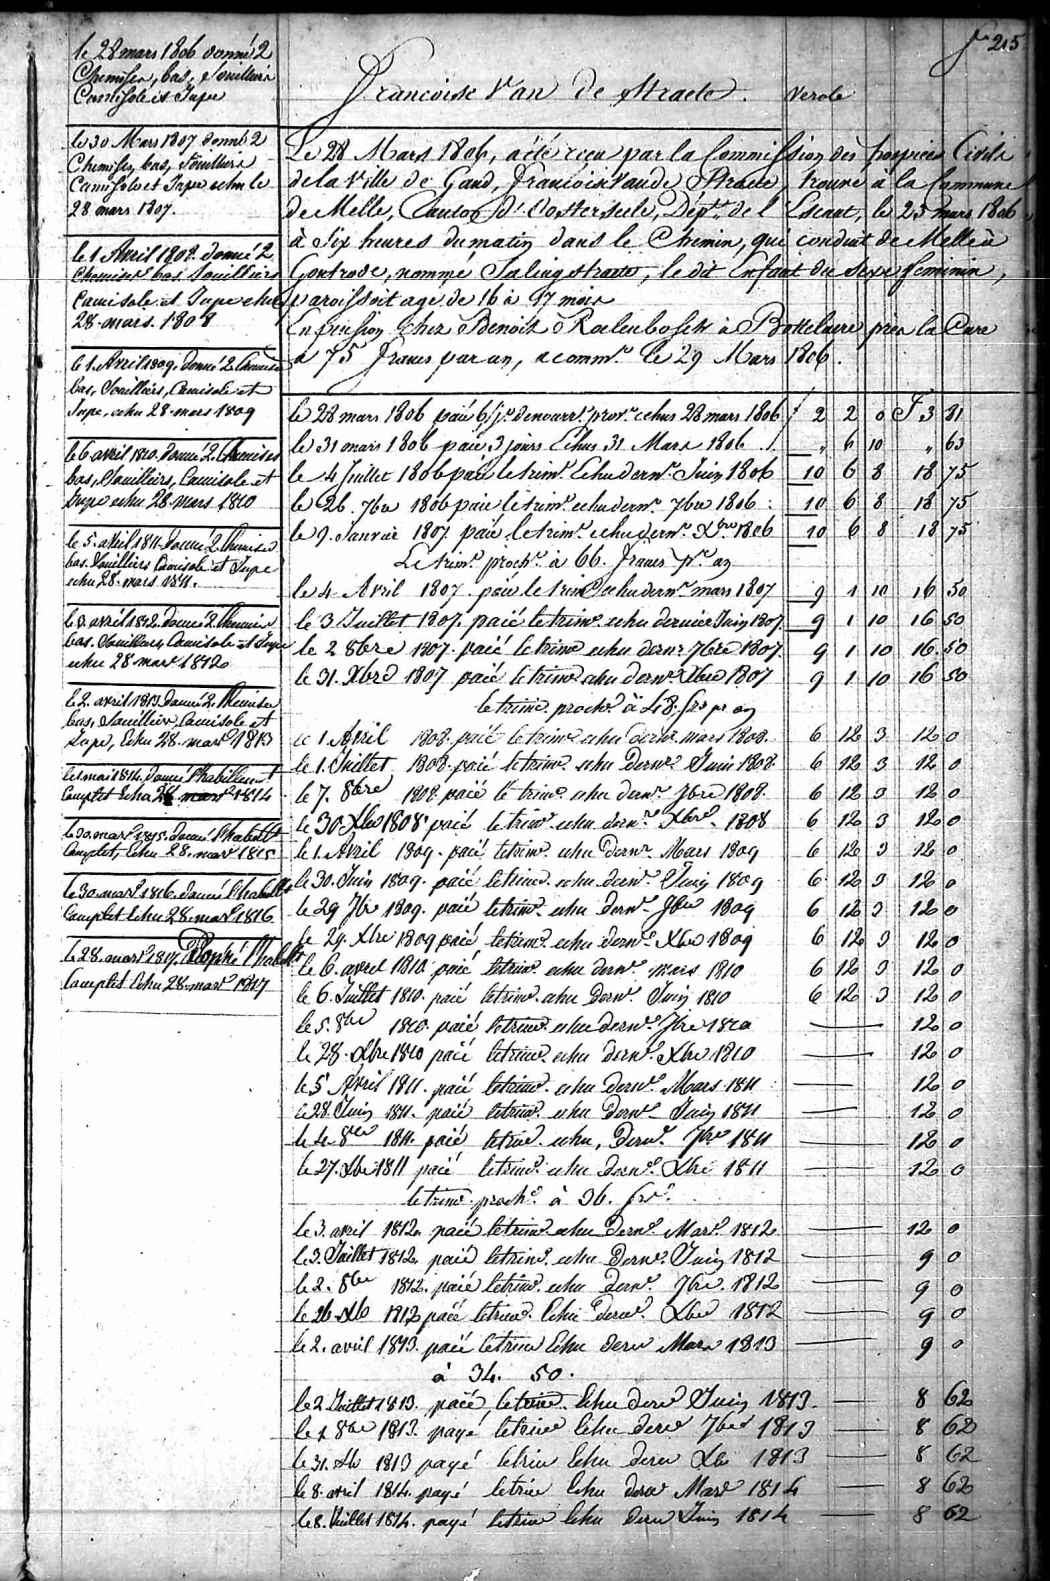 fo 215
le 28 mars 1806 donné 2
Chemises, bas, Souilliers
Camisole et Jupe
le 30 Mars 1807 donné 2
Chemises, bas, Souilliers
Camisole et Jupe echu le
28 mars 1807.
le 1 Avril 1808. donné 2
Chemises bas Souilliers
Camisole et Jupe echu
28. mars. 1808
le 1. Avril 1809. donné 2 Chemises
bas, Souilliers, Camisole et
Jupe, echu 28. mars 1809
le 6 avril 1810. donné 2. Chemises
bas, Souilliers, Camisole et
Jupe echu 28. mars 1810
le 5. avril 1811. donné 2 Chemises
bas. Souilliers Camisole et Jupe
echu 28. mars 1811.
le 3. avril 1812. donné 2 Chemises
bas. Souilliers, Camisole et Jupe
echu 28 mars 1812
le 2. avril 1813. donné 2. Chemises
bas, Souilliers, Camisole et
Jupe, Echu 28. mars 1813
le 1 mai 1814. donné l'habillement
Complet Echu 28 mars 1814
le 30. mars 1815. donné l'habillt
Complet, Echu 28. mars 1815
le 30 mars 1816. donné l'habillt
Complet Echu 28. mars 1816
le 28. mars 1817. l'habillt
Complet Echu 28. mars 1817
Francoise Van de Straete. Verole
Le 28 Mars 1806, a été reçu par la Commission des hospices Civils
de la Ville de Gand, Francoise Van de Straete, trouvé à la Commune
de Melle, Canton d'Oosterseele, Dépt. de l'Escaut, le 23 mars 1806
à Six heures du matin dans le Chemin, qui conduit de Melle à
Gontrode, nommé Salingstraete, le dit Enfant du Sexe feminin,
paroissoit agé de 16 à 17 mois
En pension chez Benoit Roelenbosch à Bottelaere près la Cure
à 75 francs par an, a commr. le 29 Mars 1806.
le 28 mars 1806 paié 61 jrs de nourr. prov. echus 28 mars 1806 2 2 0 F 3 81
le 31 mars 1806 paié 3 jours Echus 31 Mars 1806 " 6 10 " 63
le 4 Juillet 1806 paié le trimre. Echu dernr. Juin 1806 10 6 8 18 75
le 26. 7bre 1806 paié le trimre. echu dernr. 7bre 1806 10 6 8 18 75
le 9. Janvier 1807. paié le trimre. echu dernr. Xbre 1806 10 6 8 18 75
Le trimre. proche. à 66. francs pr. an
le 4 Avril 1807. paié le trimre echu dernr. mars 1807 9 1 10 16 50
le 3 Juillet 1807. paié le trimre. echu dernier Juin 1807 9 1 10 16 50
le 2 8bre 1807. paié le trimre echu dernr 7bre 1807. 9 1 10 16. 50
le 31. Xbre 1807 paié le trimre echu dernr. Xbre 1807 9 1 10 16 50
le trimre. proche. à 48. frs pr an
le 1. Avril 1808. paié le trimre echu dernr. mars 1808. 6 12 3 12 0
le 1. Juillet 1808. paié le trimre. echu dernr. Juin 1808 6 12 3 12 0
le 7. 8bre 1808. paié le trimre. echu dernr. 7bre 1808. 6 12 3 12 0
le 30. Xbre 1808. paié le trimre. echu dernr. Xbre. 1808 6 12 3 12 0
le 1. Avril 1809. paié le trimre. echu dernr. Mars 1809 6 12 3 12 0
le 30. Juin 1809. paié le trimre. echu dernr. Juin 1809 6 12 3 12 0
le 29 7bre 1809. paié le trimre. echu dernr. 7bre 1809 6 12 3 12 0
le 29. Xbre 1809 paié le trimre. echu dernr. Xbre 1809 6 12 3 12 0
le 6. avril 1810 paié le trimre. echu dernr. mars 1810 6 12 3 12 0
le 6. Juillet 1810. paié le trimre. echu dernr. Juin 1810 6 12 3 12 0
le 5. 8bre 1810. paié le trimre. echu dernr. 7bre 1810 12 0
le 28. Xbre 1810 paié le trimre. echu dernr. Xbre 1810 12 0
le 5 Avril 1811. paié le trimre. echu dernr. Mars 1811 12 0
le 28. Juin 1811. paié le trimre. echu dernr. Juin 1811 12 0
le 4. 8bre 1811. paié le trimre. echu, dernr. 7bre 1811 12 0
le 27. Xbre 1811 paié le trimre. echu dernr. Xbre 1811 12 0
le trimre. proche. à 36. frs.
le 3. avril 1812. paié le trimre echu dernr. Mars. 1812 12 0
le 3. Juillet 1812. paié le trimre. echu dernr. Juin 1812 9 0
le 2. 8bre 1812. paié le trimre. echu dernr. 7bre. 1812 9 0
le 26 Xbre 1812 paié le trimre. Echu dernr. Xbre 1812 9 0
le 2. avril 1813. paié le trimre Echu dernr Mars 1813 9 0
à 34. 50.
le 2 Juillet 1813. paié, le trimre. Echu dernr Juin 1813. 8 62
le 1 8bre 1813. payé le trimre Echu dernr 7bre 1813 8 62
le 31. Xbre 1813 payé le trimre Echu dernr Xbre 1813 8 62
le 8. avril 1814. payé le trimre Echu dernr Mars 1814 8 62
le 8. Juillet 1814. payé le trimre Echu dernr Juin 1814 8 62